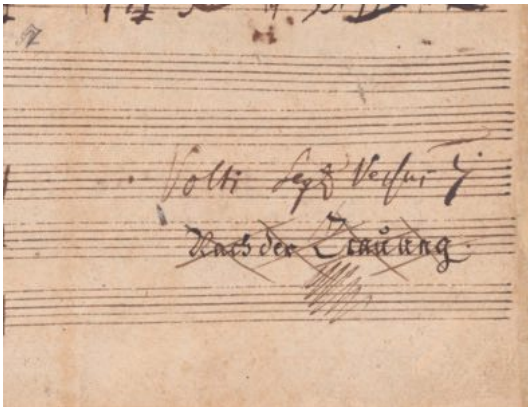 Volti Versus 7
Nach der Trauung.